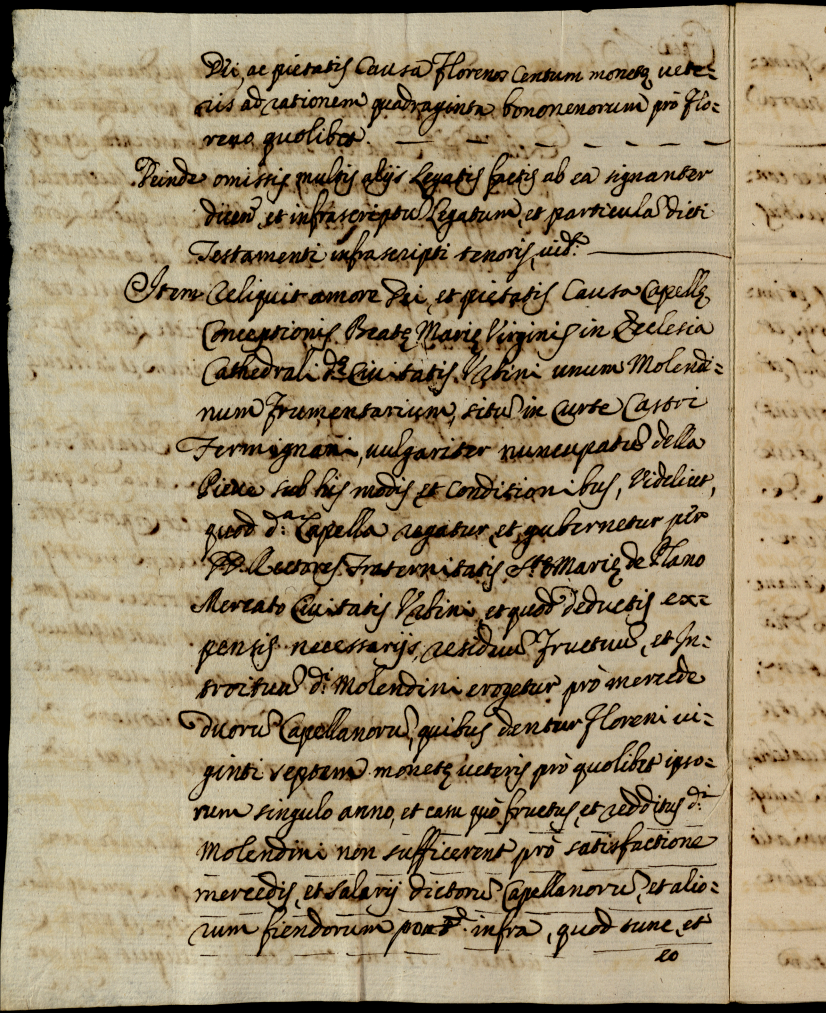 Dei, ac pietatis Causa Florenos Centum monetę vete=
ris ad rationem quadraginta bononenorum prò Flo=
reno quolibet. — — — — — —
Deinde omissis multis alijs Legatis factis ab ea signanter
dicit et infrascriptũ Legatum, et particula dicti
Testamenti infrascripti tenoris, vidt. —
Item Reliquit amore Dei, et pietatis Causa Capellę
Conceptionis Beatę Marię Virginis in Ecclesia
Cathedrali dę Ciuitatis Vrbini unum Molendi=
num Frumentarium, situ in Curte Castri
Fermignani, uulgariter nuncupatũ della
Pieue sub his modis et Conditionibus, Videlicet,
quod d.a Capella regatur, et gubernetur per
DD. Rectores Fraternitatis S.tę Marię de Plano
Mercato Ciuitatis Vrbini, et quod deductis ex=
pensis necessarijs, residuũ Fructuũ, et In=
troituũ d.i Molendini erogetur prò mercede
duorũ Capellanorũ, quibus dentur Floreni ui=
ginti septem monetę ueteris prò quolibet ipso=
rum singulo anno, et casu quò fructus, et redditus d.i
Molendini non sufficerent prò satisfactione
mercedis, et salarij dictorũ Capellanorũ, et alio=
rum fiendorum infra, quod tunc, et
eo